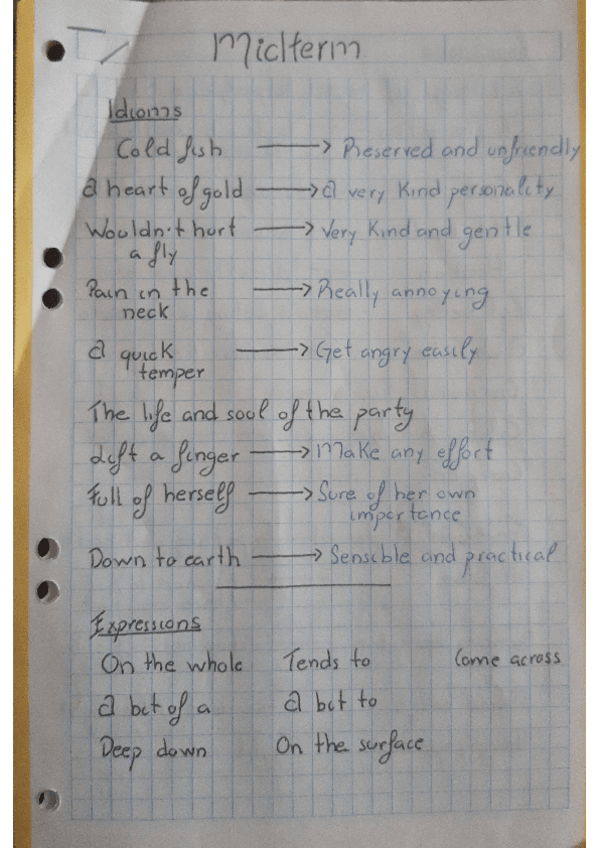 Midterm
Idioms
Cold fish → Reserved and unfriendly
A heart of gold → A very kind personality
Wouldn't hurt → Very kind and gentle
a fly
Pain in the → Really annoying
neck
A quick → Get angry easily
temper
The life and soul of the party
Lift a finger → Make any effort
Full of herself → Sure of her own
importance
Down to earth → Sensible and practical
Expressions
On the whole Tends to Come across
A bit of a A bit to
Deep down On the surface